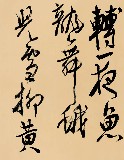 轉一夜魚
龍舞蛾
兒雪柳黃